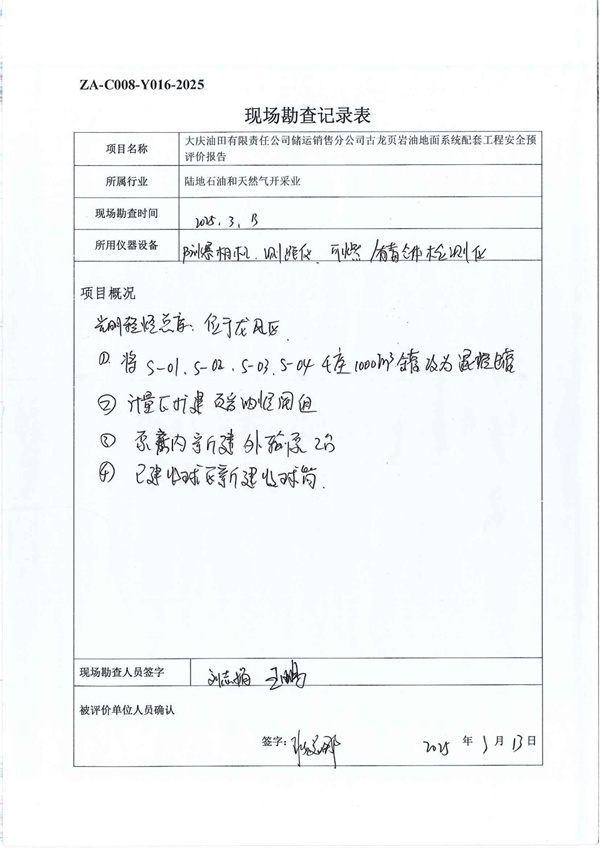 ZA-C008-Y016-2025
现场勘查记录表
项目名称
大庆油田有限责任公司储运销售分公司古龙页岩油地面系统配套工程安全预
评价报告
所属行业
陆地石油和天然气开采业
现场勘查时间
2025.3.13
所用仪器设备
防爆相机、测距仪、可燃/有毒气体检测仪
项目概况
位于龙凤区
① 将 S-01、S-02、S-03、S-04 4座1000m³ 改为混烃
② 计量区扩建页岩油烃阀组
③ 泵房内新建外输泵2台
④ 已建收球区新建收球筒.
现场勘查人员签字
刘志娟 王鹏
被评价单位人员确认
签字:
2025 年 3 月 13 日